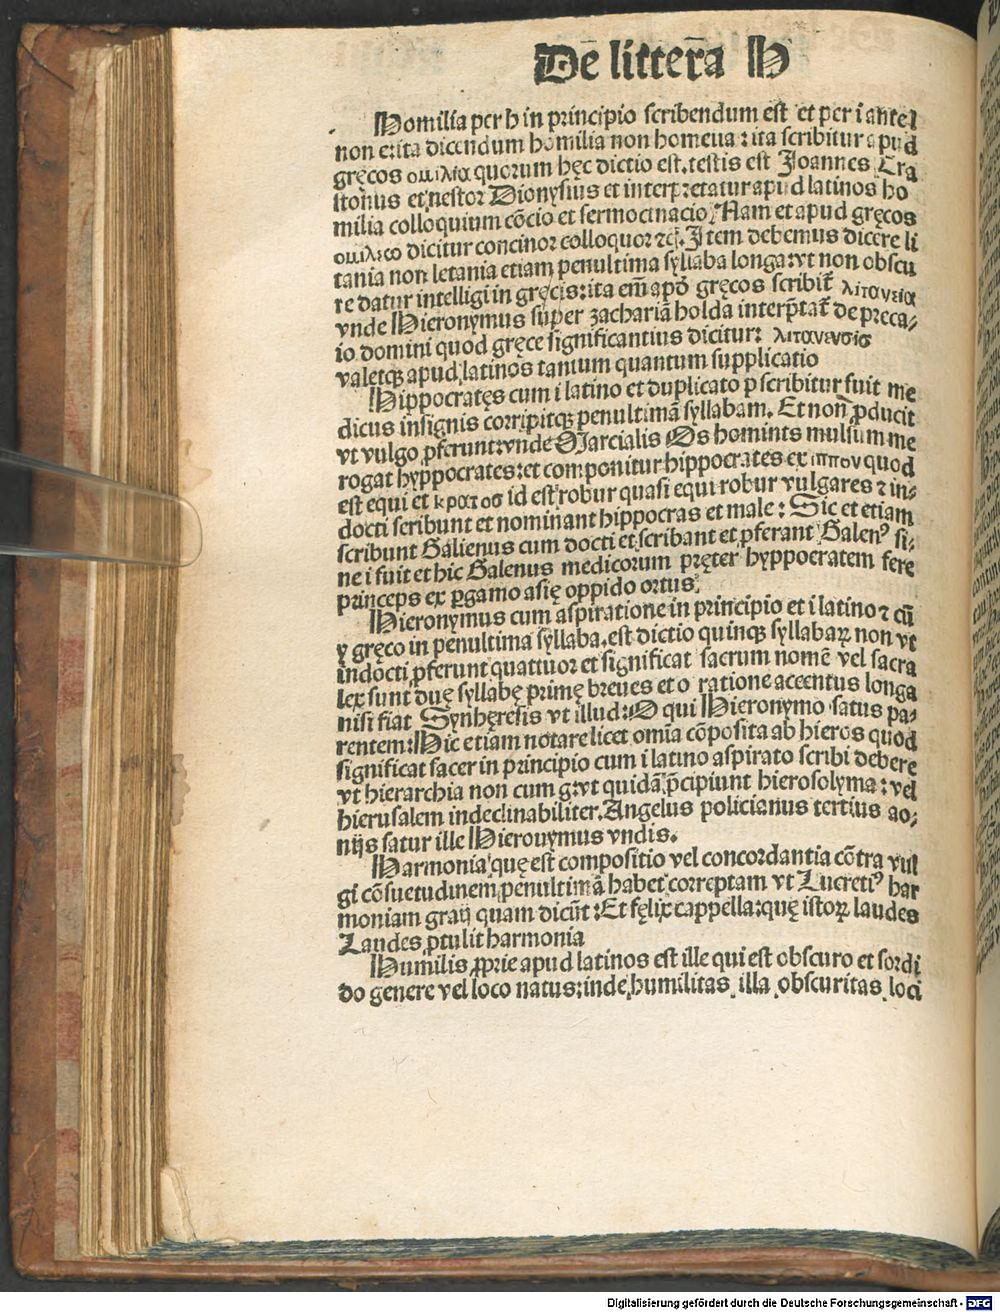 Dē litter̄a H
Homilia per h in principio scribendum est et per i ante l
non e: ita dicendum homilia non homeua: ita scribitur apud
gręcos ομιλια quorum hęc dictio est. testis est Joannes Cra
stonus et nestor Dionysius et interpretatur apud latinos ho
milia colloquium cōcio et sermocinacio. Nam et apud gręcos
ομιλεω dicitur concinor colloquor ⁊c̄. Item debemus dicere li
tania non letania etiam penultima syllaba longa: vt non obscu
re datur intelligi in gręcis: ita em̄ apd̓ gręcos scribit᷑ λιτανεια
vnde Hieronymus super zachariā holda interp̄tat᷑ de preca⸗
io domini quod gręce significantius dicitur: λιτανευσις
valetqꝫ apud latinos tantum quantum supplicatio
Hippocratęs cum i latino et duplicato p scribitur fuit me
dicus insignis corripitqꝫ penultimā syllabam. Et non ꝓducit
vt vulgo ꝓferunt: vnde Marcialis Os hominis mulsum me
rogat hyppocrates: et componitur hippocrates ex ιππου quod
est equi et κρατοσ id est robur quasi equi robur vulgares ⁊ in⸗
docti scribunt et nominant hippocras et male: Sic et etiam
scribunt Galienus cum docti et scribant et ꝓferant Galenꝰ si⸗
ne i fuit et hic Galenus medicorum pręter hyppocratem fere
princeps ex ꝑgamo asię oppido ortus.
Hieronymus cum aspiratione in principio et i latino ⁊ cū
y gręco in penultima syllaba. est dictio quinqꝫ syllabaꝝ non vt
indocti ꝓferunt quattuor et significat sacrum nomē vel sacra
lex sunt duę syllabę primę breues et o ratione accentus longa
nisi fiat Synhęresis vt illud: O qui Hieronymo satus pa⸗
rentem: Hic etiam notare licet omia cōposita ab hieros quod
significat sacer in principio cum i latino aspirato scribi debere
vt hierarchia non cum g: vt quidā p̄cipiunt hierosolyma: vel
hierusalem indeclinabiliter. Angelus policianus tertius ao⸗
nijs satur ille Hieronymus vndis.
Harmonia quę est compositio vel concordantia cōtra vul
gi cōsuetudinem penultimā habet correptam vt Lucretiꝰ har
moniam graij quam dicūt: Et fęlix cappella: quę istoꝝ laudes
Laudes ꝓtulit harmonia
Humilis ꝓprie apud latinos est ille qui est obscuro et sordi
do genere vel loco natus: inde humilitas illa obscuritas loci
Digitalisierung gefördert durch die Deutsche Forschungsgemeinschaft - DFG